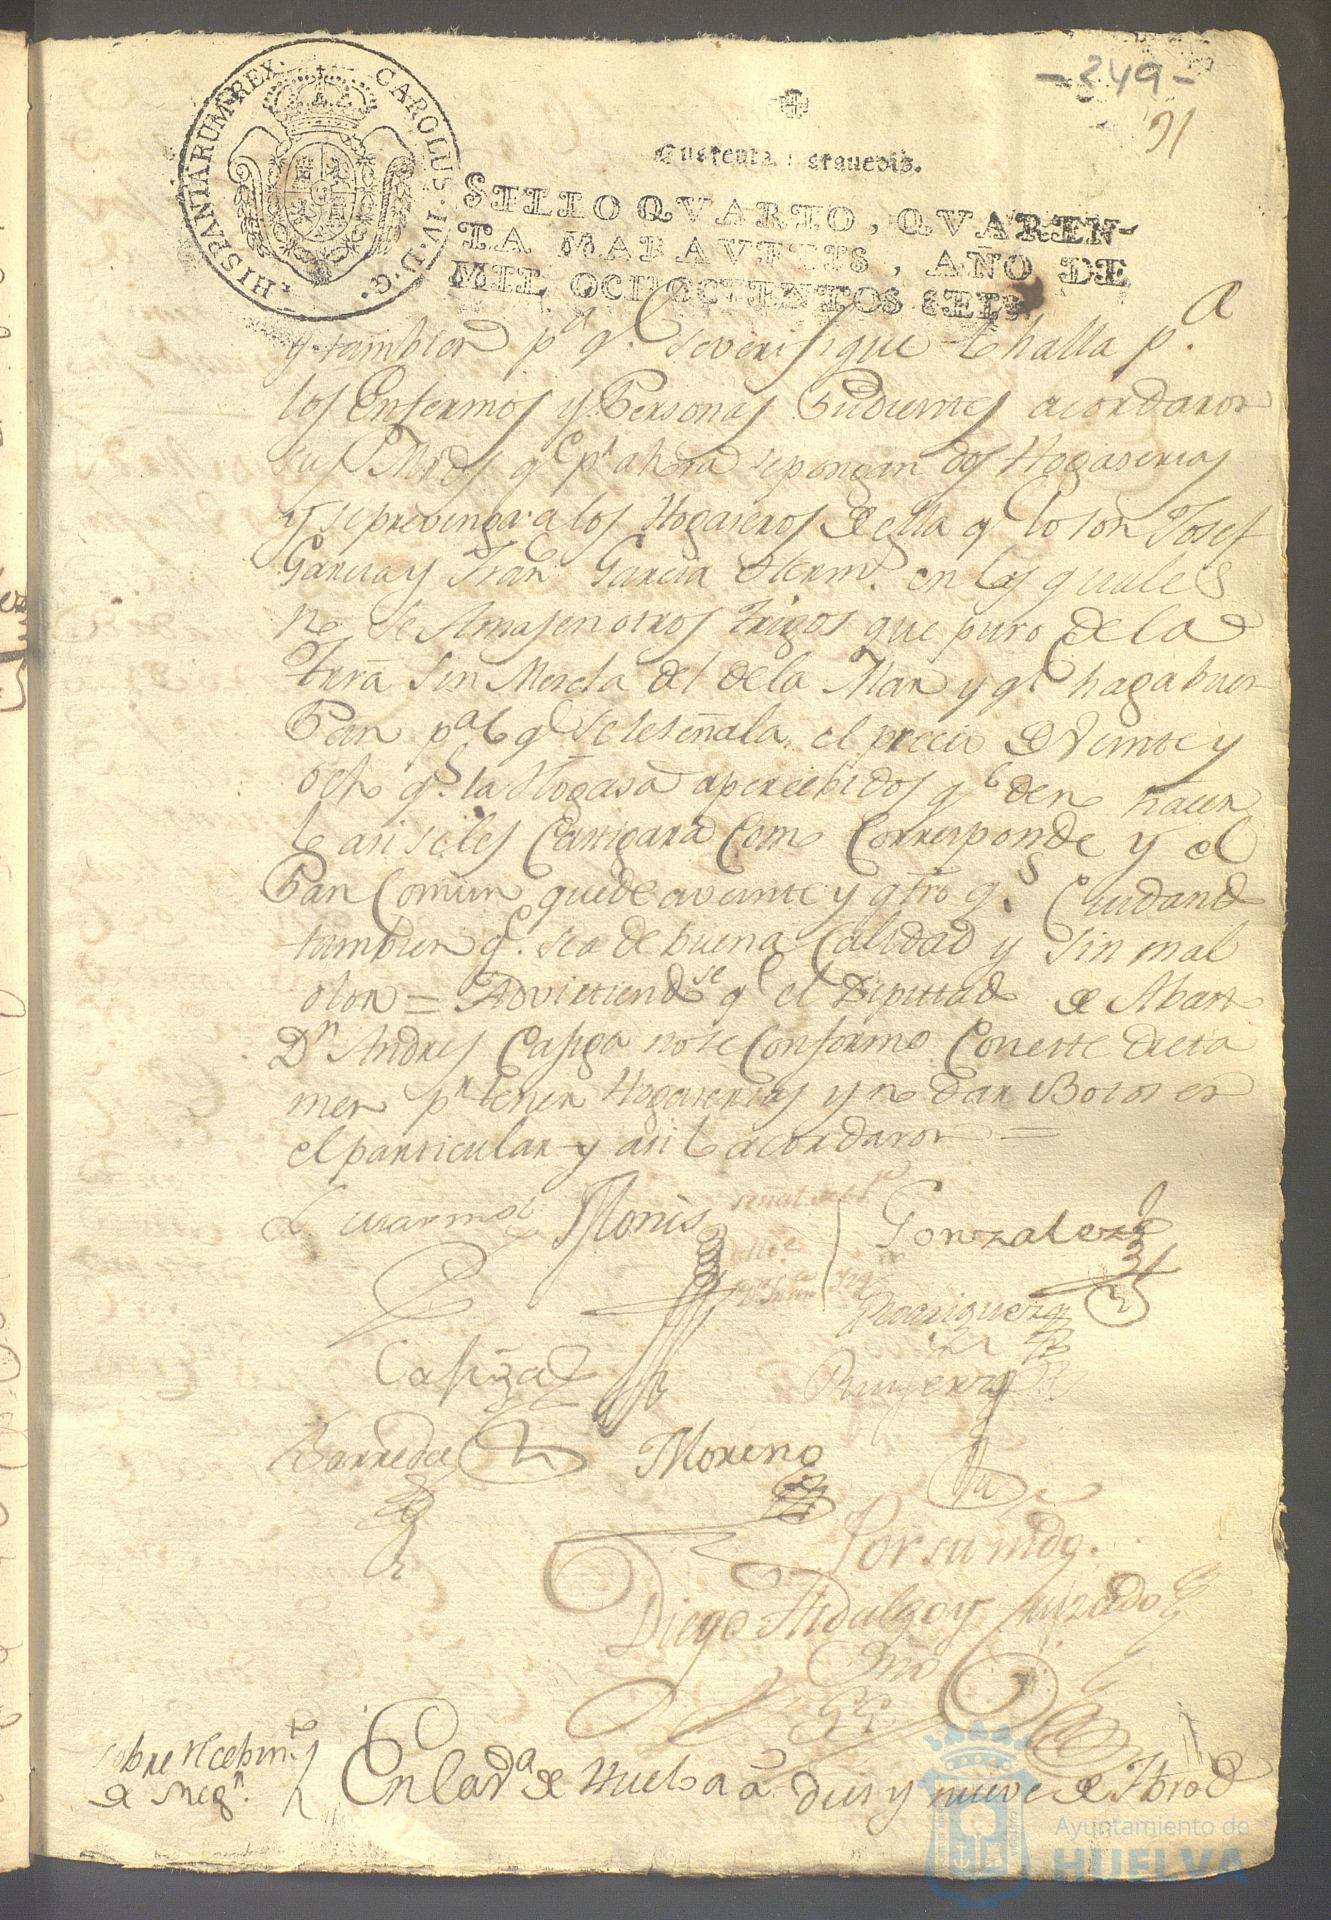 -249-
91
HISPANIARUM REX. CAROLUS IV. D. G.
Quarenta maravedis.
SELLO QVARTO, QVAREN-
TA MARAVEDIS, AÑO DE
MIL OCHOCIENTOS SEIS.
y tambien pa. qe. se verifique lo halla pa.
los Enfermos y Personas Pudientes acordaron
sus Mrds qe pr ahora se pongan dos Hogaserias
y se prevenga a los Hogaseros de ella qe lo son Josef
Garcia y Fran Garcia Herms. en las quales
no se Amasen otros trigos que puro de la
tierra sin Mescla del de la Mar y qe haga buen
Pan pa lo qe se le señala el precio de Veinte y
ocho qs. la Hogasa apercebidos qe de no hacer
lo asi se les Castigara Como Corresponde y el
Pan Comun quede a veinte y qtro qs. Cuidando
tambien qe. sea de buena Calidad y sin mal
olor = Advirtiendose qe el Diputtado de Abasto
Dn Andres Casiga no se Conformo Con este dicta
men pr tener Hogaserias y no dar Botos en
el particular y asi lo acordaron =
Monis
Gonzalez
Rodriguez
Barreda
Moreno
Por su mdo.
Diego Hidalgo y
Enla va de Huelba a dies y nueve de Hbro de
sobre recebimto
de Neg.
Ayuntamiento de
HUELVA